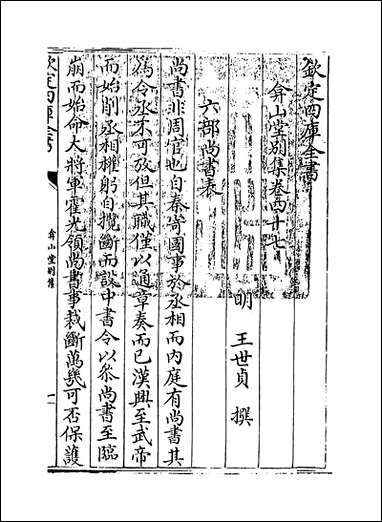 欽定四庫全書
弇山堂別集卷四十七
明 王世貞 撰
六部尚書表
尚書非周官也自秦寄國事於丞相而內庭有尚書其
為令丞不可攷但其職僅以通章奏而已漢興至武帝
而始削丞相權躬自攬斷而設中書令以叅尚書至臨
崩而始命大將軍霍光領尚書事裁斷萬㡬可否保護
欽定四庫全書
弇山堂別集
一